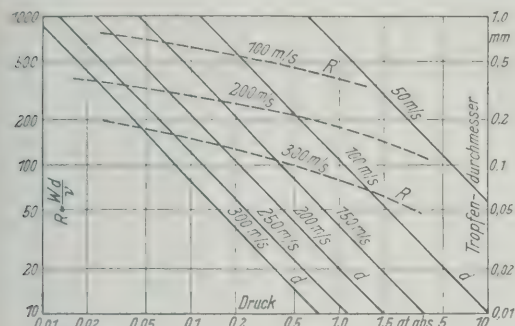 1000
500
200
100
50
20
10
R=Wd/ν
1.0
mm
0.5
0.2
0.1
0,05
0,02
0,01
Tropfen-durchmesser
100 m/s R
200 m/s
300 m/s R
50 m/s
100 m/s d
150 m/s
200 m/s d
250 m/s
300 m/s d
Druck
0.01 0.02 0.05 0.1 0.2 0.5 1.0 1.5 at abs. 5 10